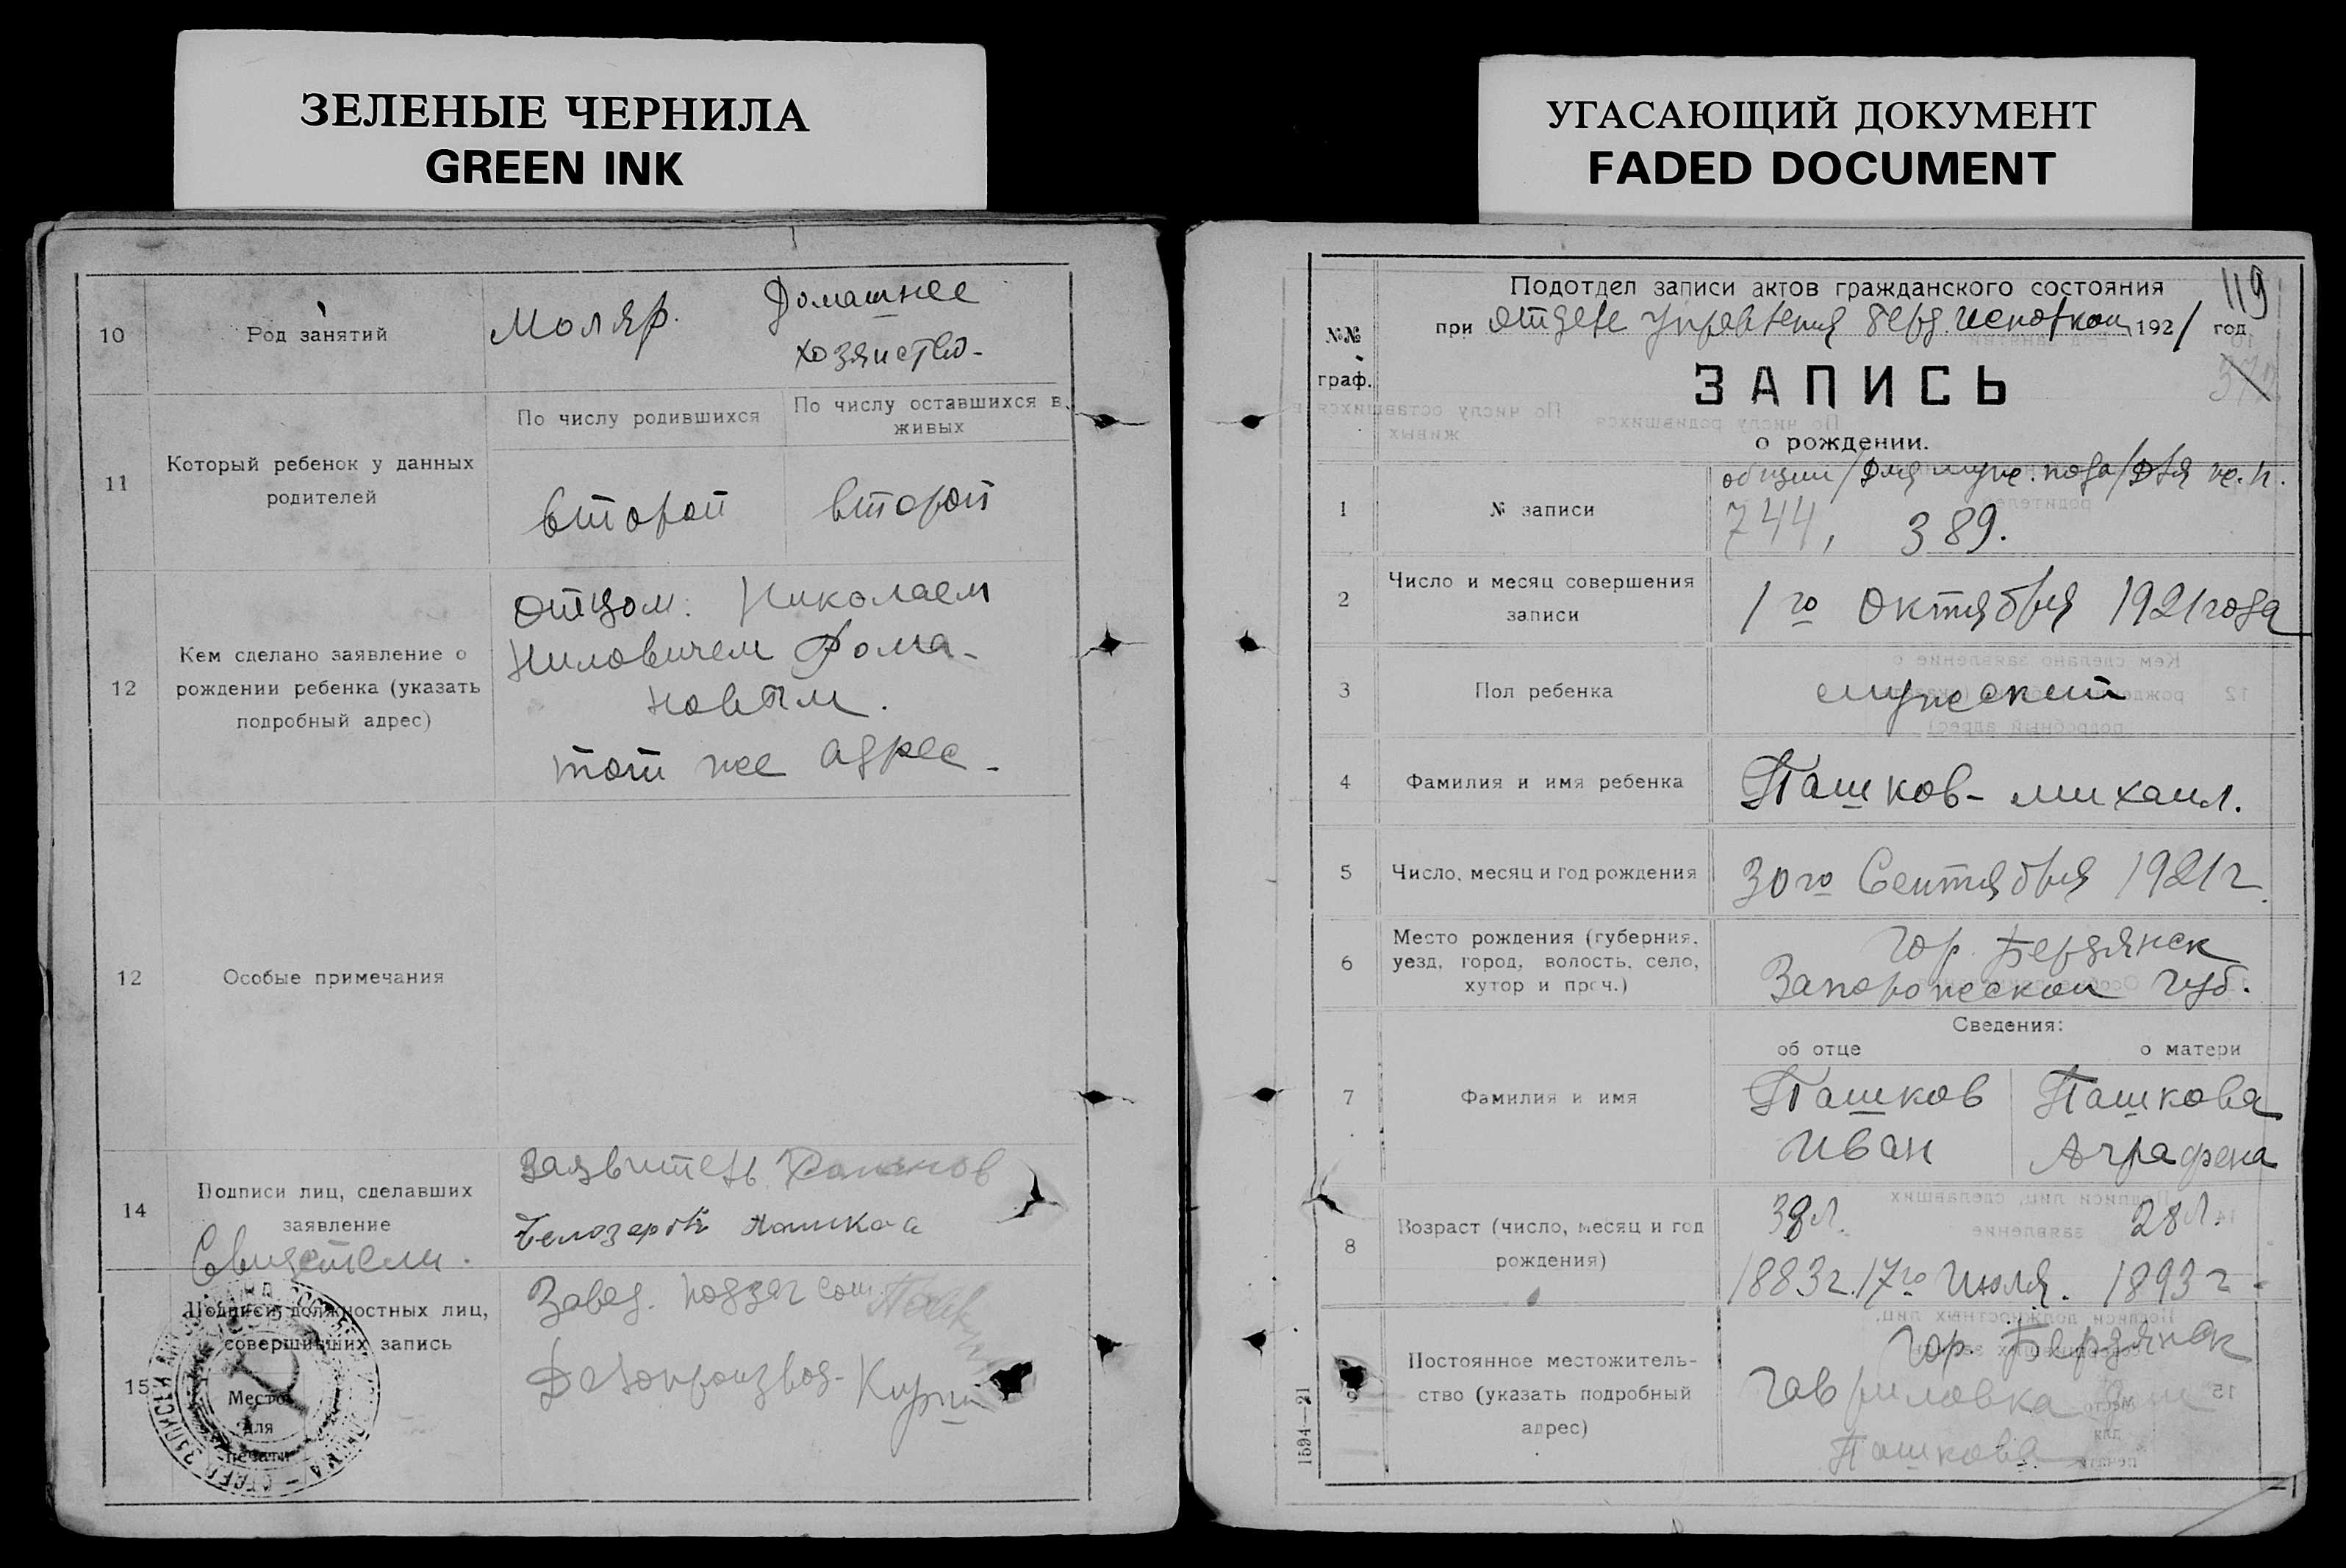 ЗЕЛЕНЫЕ ЧЕРНИЛА
GREEN INK
УГАСАЮЩИЙ ДОКУМЕНТ
FADED DOCUMENT
10
Род занятий
Моляр.
Домашнее
хозяйство-
11
Который ребенок у данных
родителей
По числу родившихся
второй
По числу оставшихся в
живых
второй
12
Кем сделано заявление о
рождении ребенка (указать
подробный адрес)
отцом: Николаем
Ниловичем Рома-
новым.
тот же адрес-
12
Особые примечания
14
Подписи лиц, сделавших
заявление
Свидетели.
Заявитель Романов
15
Подписи должностных лиц,
совершивших запись
Место
для
печати
Завед. подзагсом
Делопроизвод-
119
Подотдел записи актов гражданского состояния
при отделе управления берд. исполкома 1921 год
№№
граф.
ЗАПИСЬ
о рождении.
1
№ записи
общий/для муж. пола/для ж.п.
744, 389.
2
Число и месяц совершения
записи
1го Октября 1921 года
3
Пол ребенка
мужской
4
Фамилия и имя ребенка
Пашков-Михаил.
5
Число, месяц и год рождения
30го Сентября 1921г.
6
Место рождения (губерния,
уезд, город, волость, село,
хутор и проч.)
гор. Бердянск
Запорожской губ.
Сведения:
об отце
о матери
7
Фамилия и имя
Пашков
Иван
Пашкова
Аграфена
8
Возраст (число, месяц и год
рождения)
38л.
28л.
1883г. 17го Июля.
1893г.
9
Постоянное местожитель-
ство (указать подробный
адрес)
гор. Бердянск
Гавриловка
Пашкова
1594—21